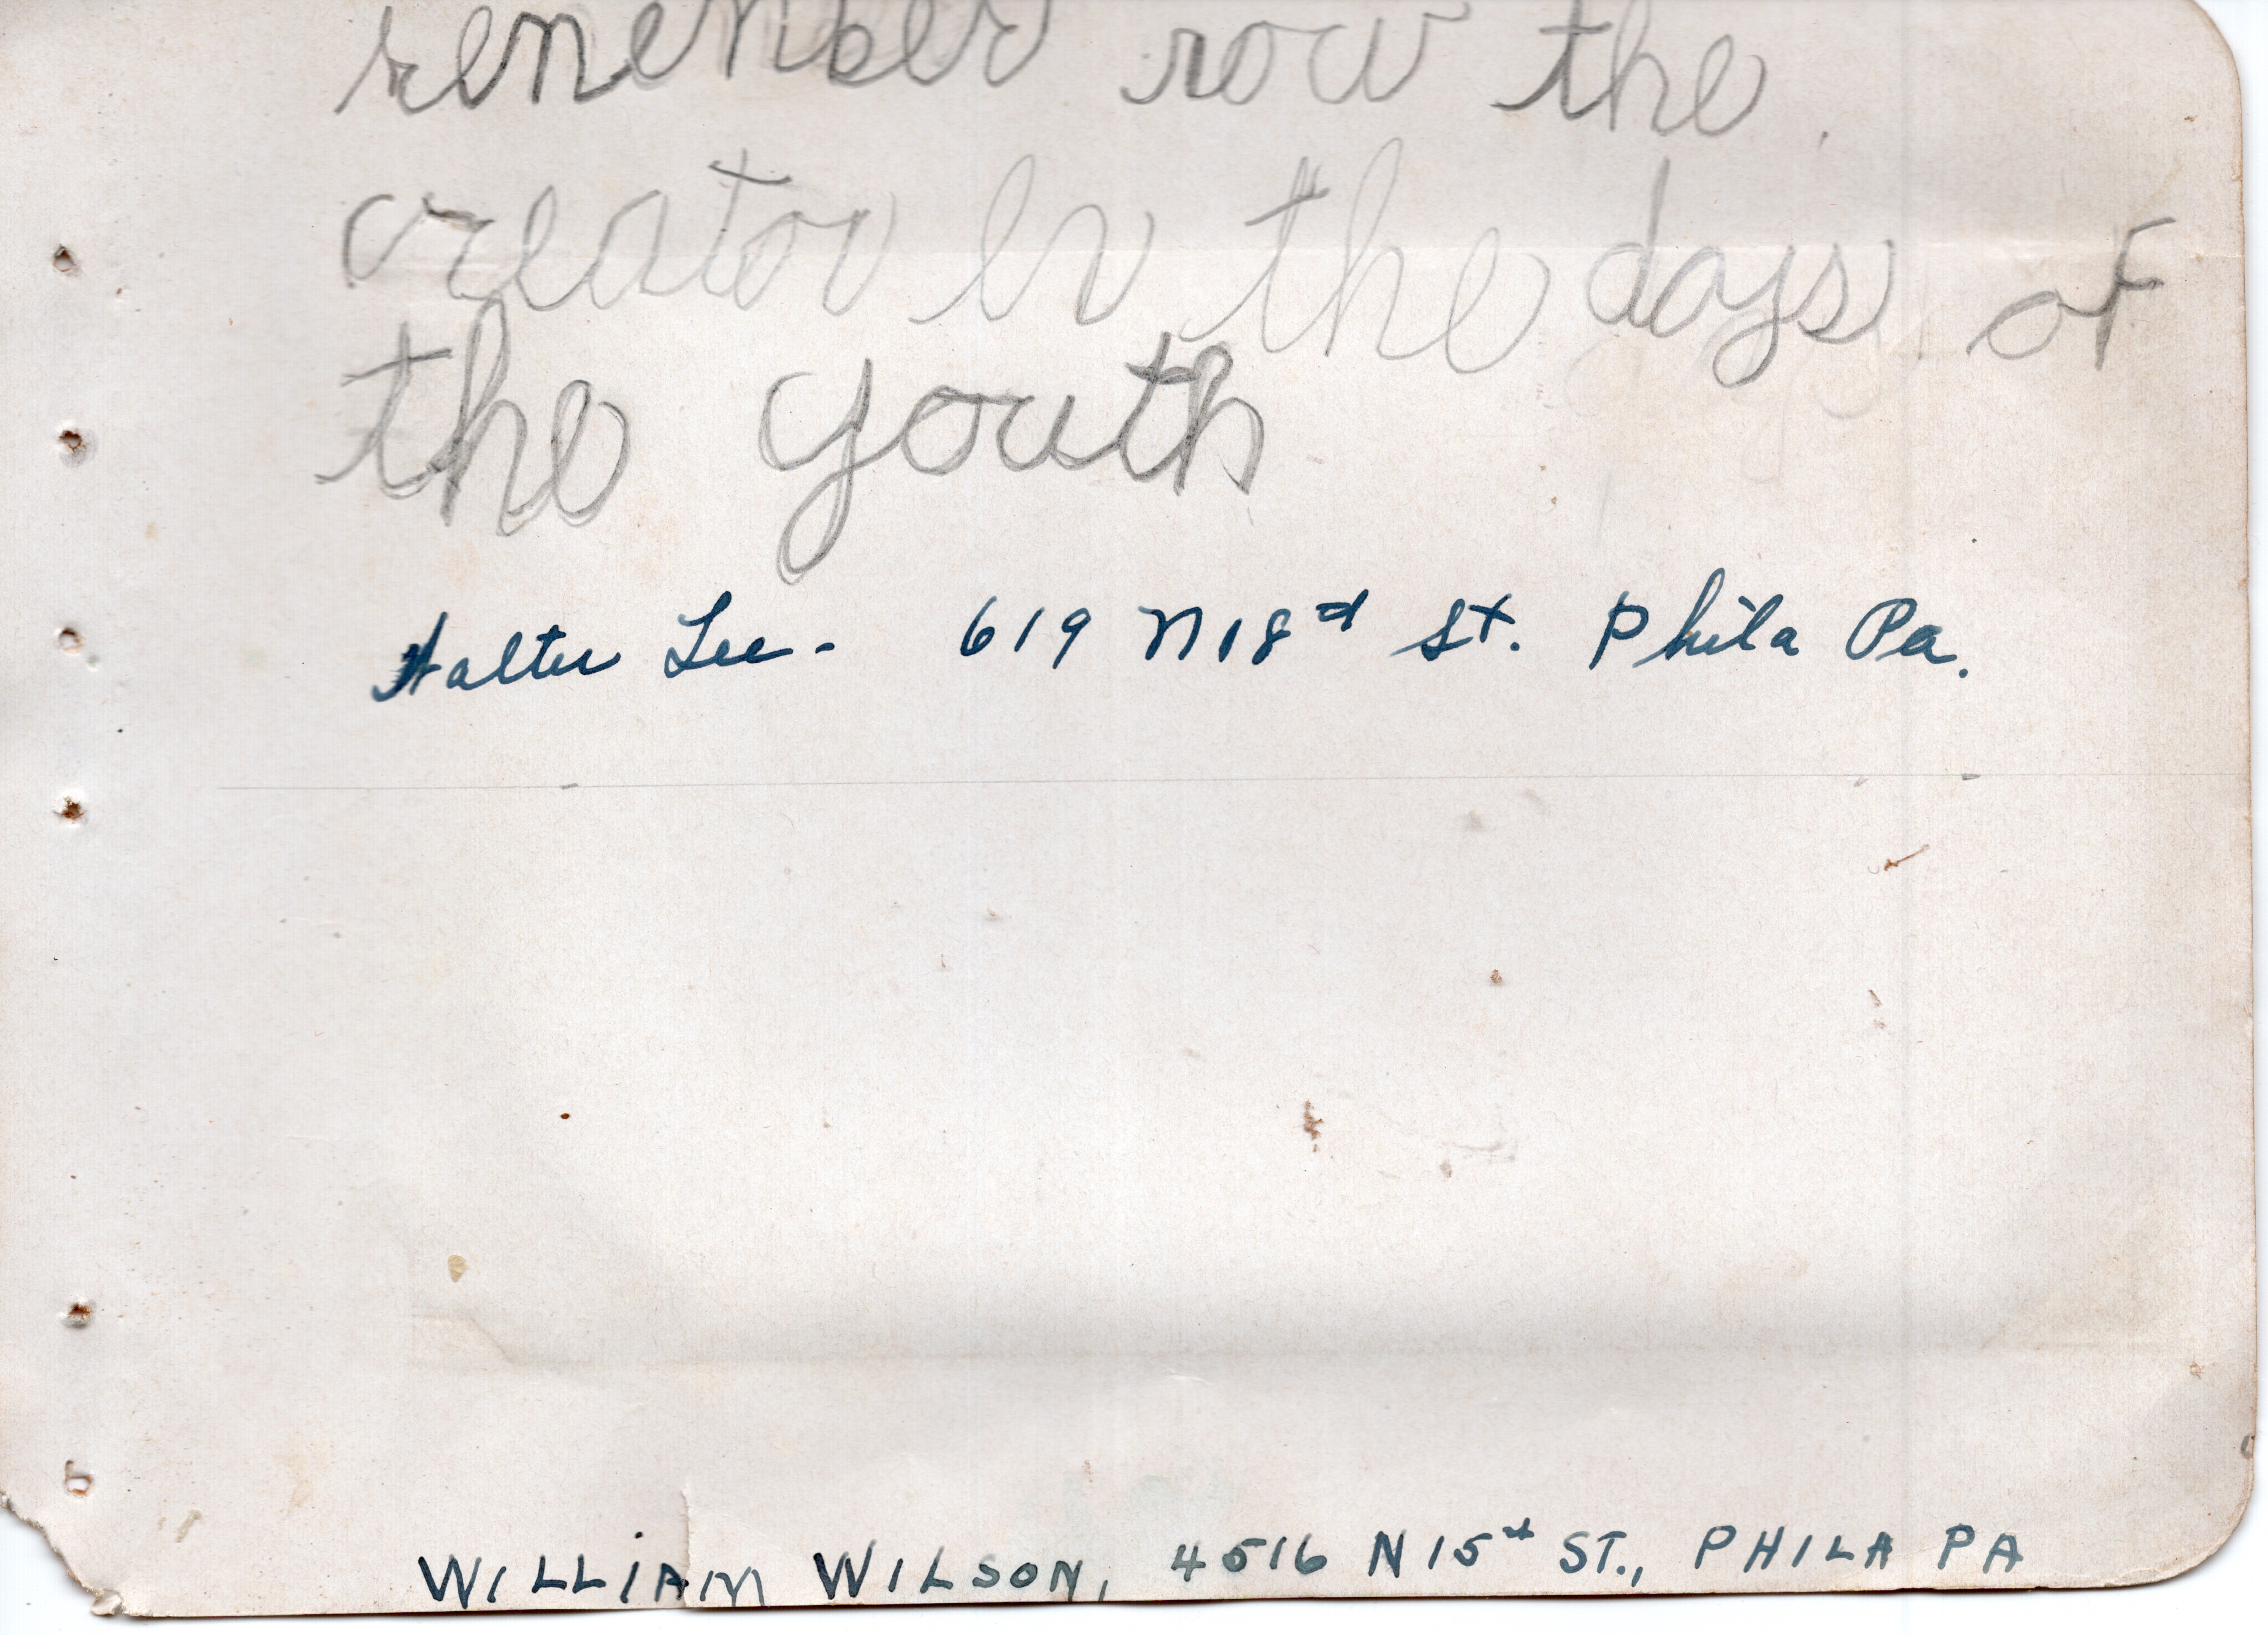 remember now the
creator in the days of
the youth
Walter Lee - 619 N 18d St. Phila Pa.
WILLIAM WILSON, 4516 N 15d ST., PHILA PA